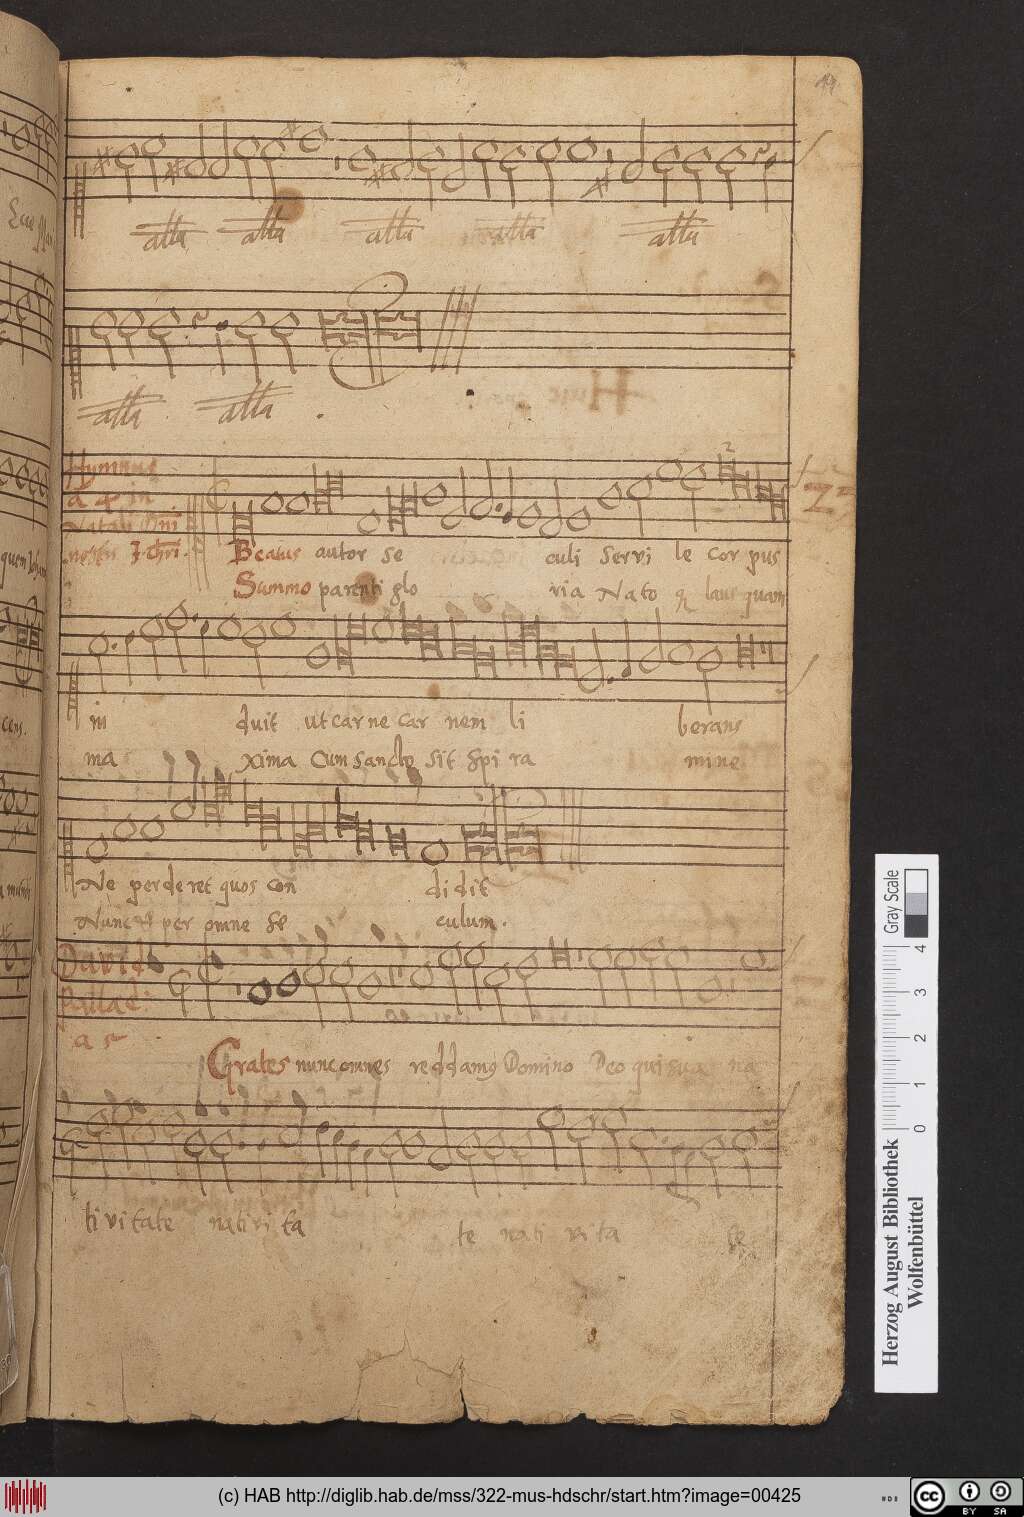 44
alla alla alla alla alla
alla alla
Hymnus
a 4 in
Natali Dni
nostri J. Chri.
Beatus autor se culi servi le cor pus
Summo parenti glo ria Nato q laus quam
2
in duit ut car ne car nem li berans
ma xima Cum sancto sit spi ra mine
Ne perderet quos con di dit
Nunc et per omne se culum.
David
a 5
Grates nunc omnes reddamus Domino Deo qui sua na
ti vi tate nativi ta te nati vi ta te
quem
cens.
Gray Scale
0 1 2 3 4
Herzog August Bibliothek
Wolfenbüttel
(c) HAB http://diglib.hab.de/mss/322-mus-hdschr/start.htm?image=00425
cc BY SA